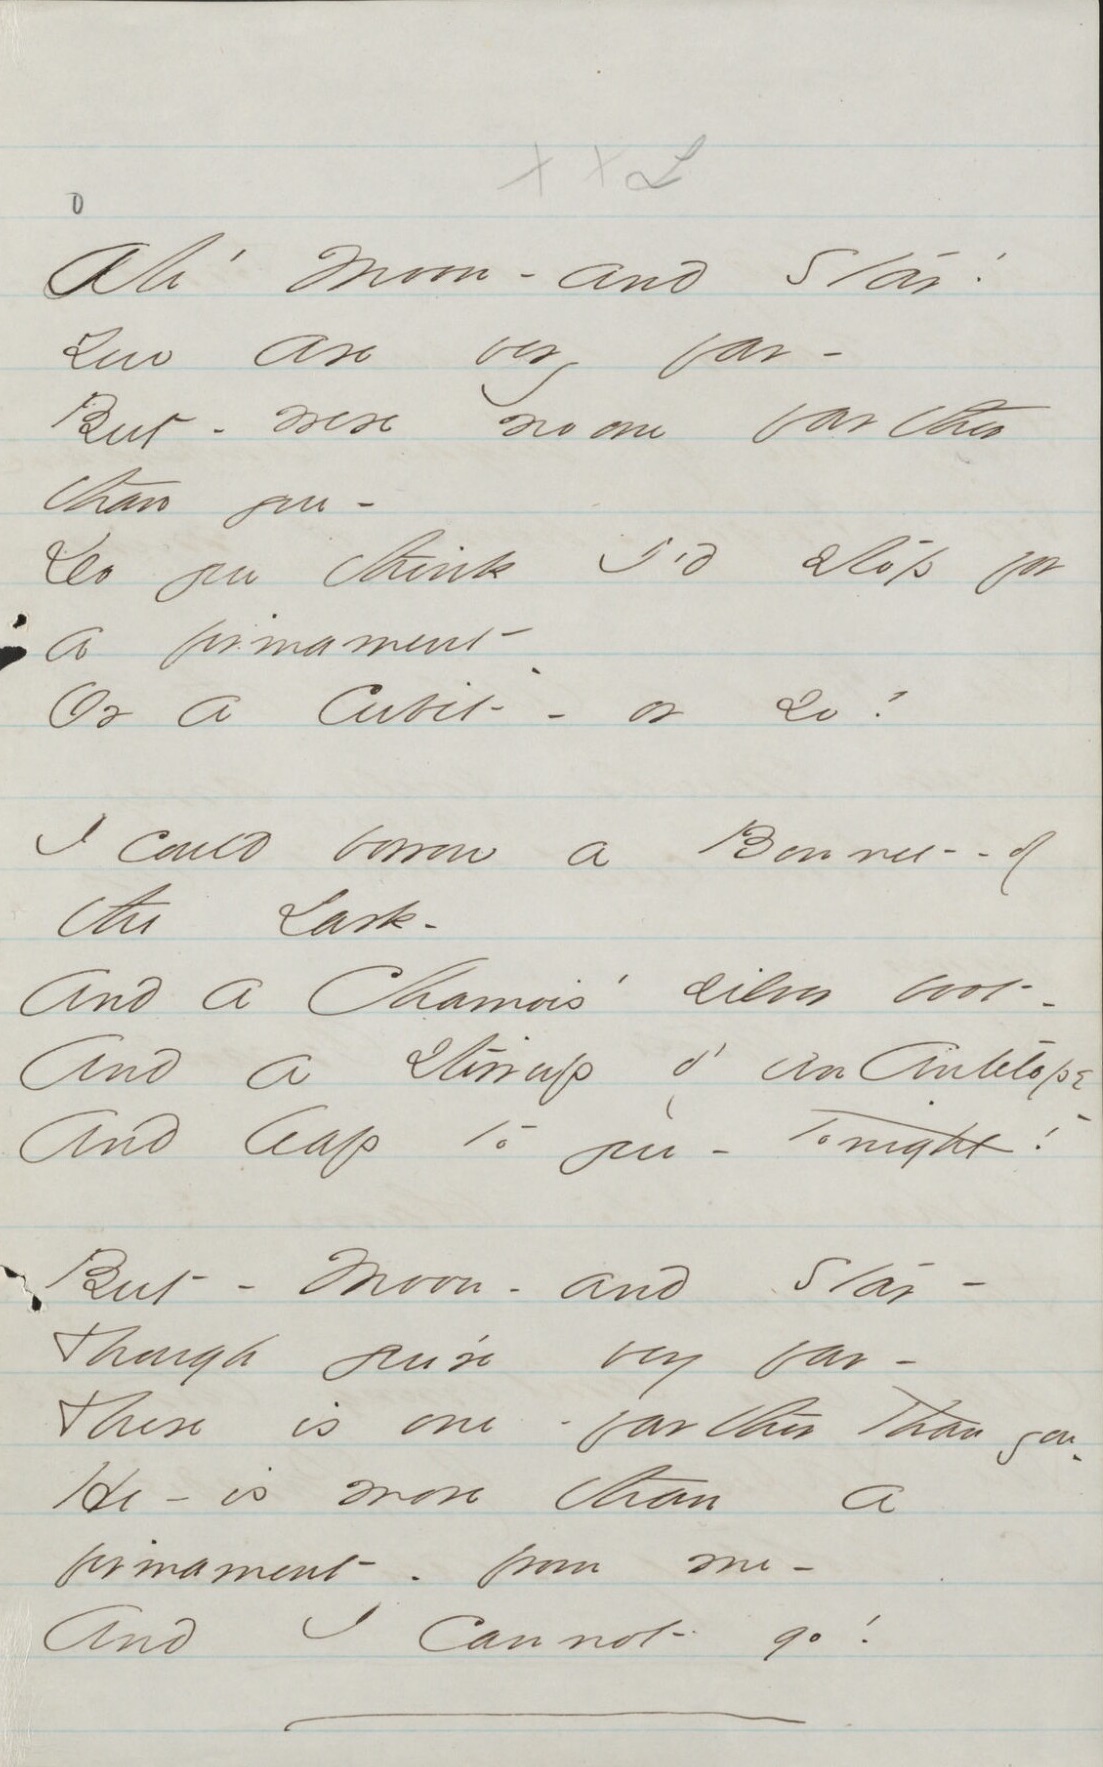 x x L
0
Ah' Moon - and Star!
You are very far -
But - were no one farther
than you -
Do you think I'd stop for
a firmament -
Or a Cubit - or so?
I could borrow a Bonnet - of
the Lark -
And a Chamois' silver boot -
And a stirrup of an Antelope -
And leap to you - Tonight!
But - Moon - and Star -
Though you're very far -
There is one - farther than you -
He - is more than a
firmament - from me -
And I cannot go!